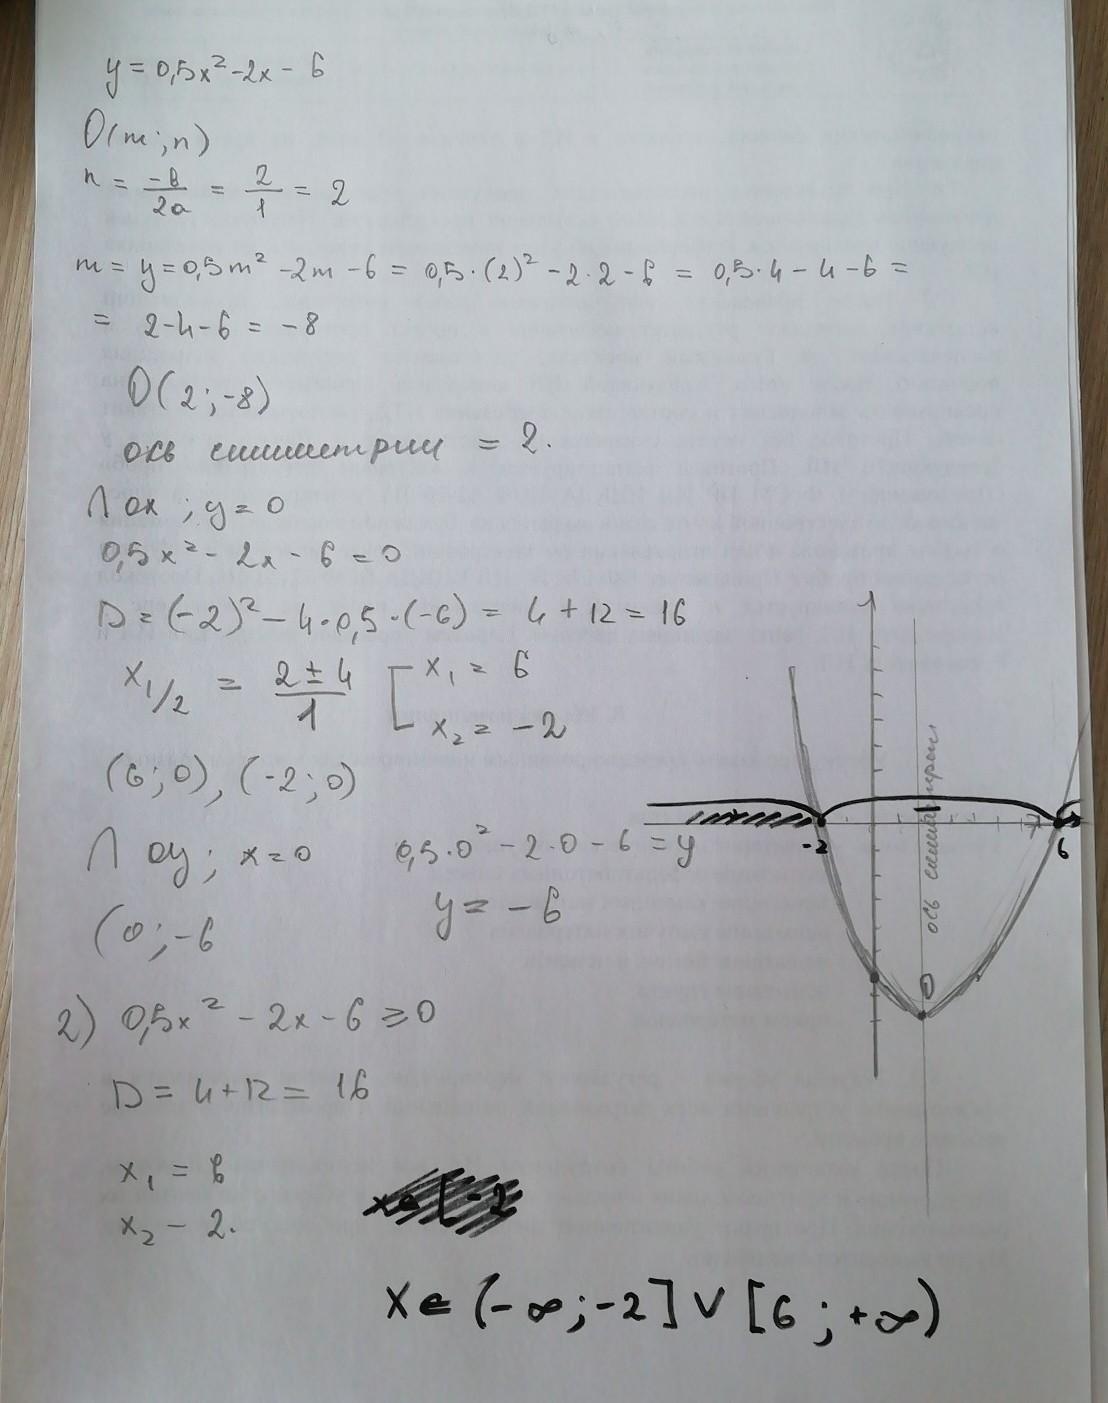 y = 0,5x² - 2x - 6
O(m ; n)
n = -b/2a = 2/1 = 2
m = y = 0,5m² - 2m - 6 = 0,5·(2)² - 2·2 - 6 = 0,5·4 - 4 - 6 =
= 2-4-6 = -8
O(2 ; -8)
ось симметрии = 2.
∩ ox ; y = 0
0,5x² - 2x - 6 = 0
D = (-2)² - 4·0,5·(-6) = 4 + 12 = 16
x1/2 = 2 ± 4/1 [ x₁ = 6
x₂ = -2
(6 ; 0), (-2 ; 0)
∩ oy ; x = 0 0,5·0² - 2·0 - 6 = y
y = -6
(0 ; -6
ось симметрии
-2
6
O
2) 0,5x² - 2x - 6 ≥ 0
D = 4 + 12 = 16
x₁ = 6
x₂ - 2.
x ∈ [-2
x ∈ (-∞ ; -2] ∨ [6 ; +∞)